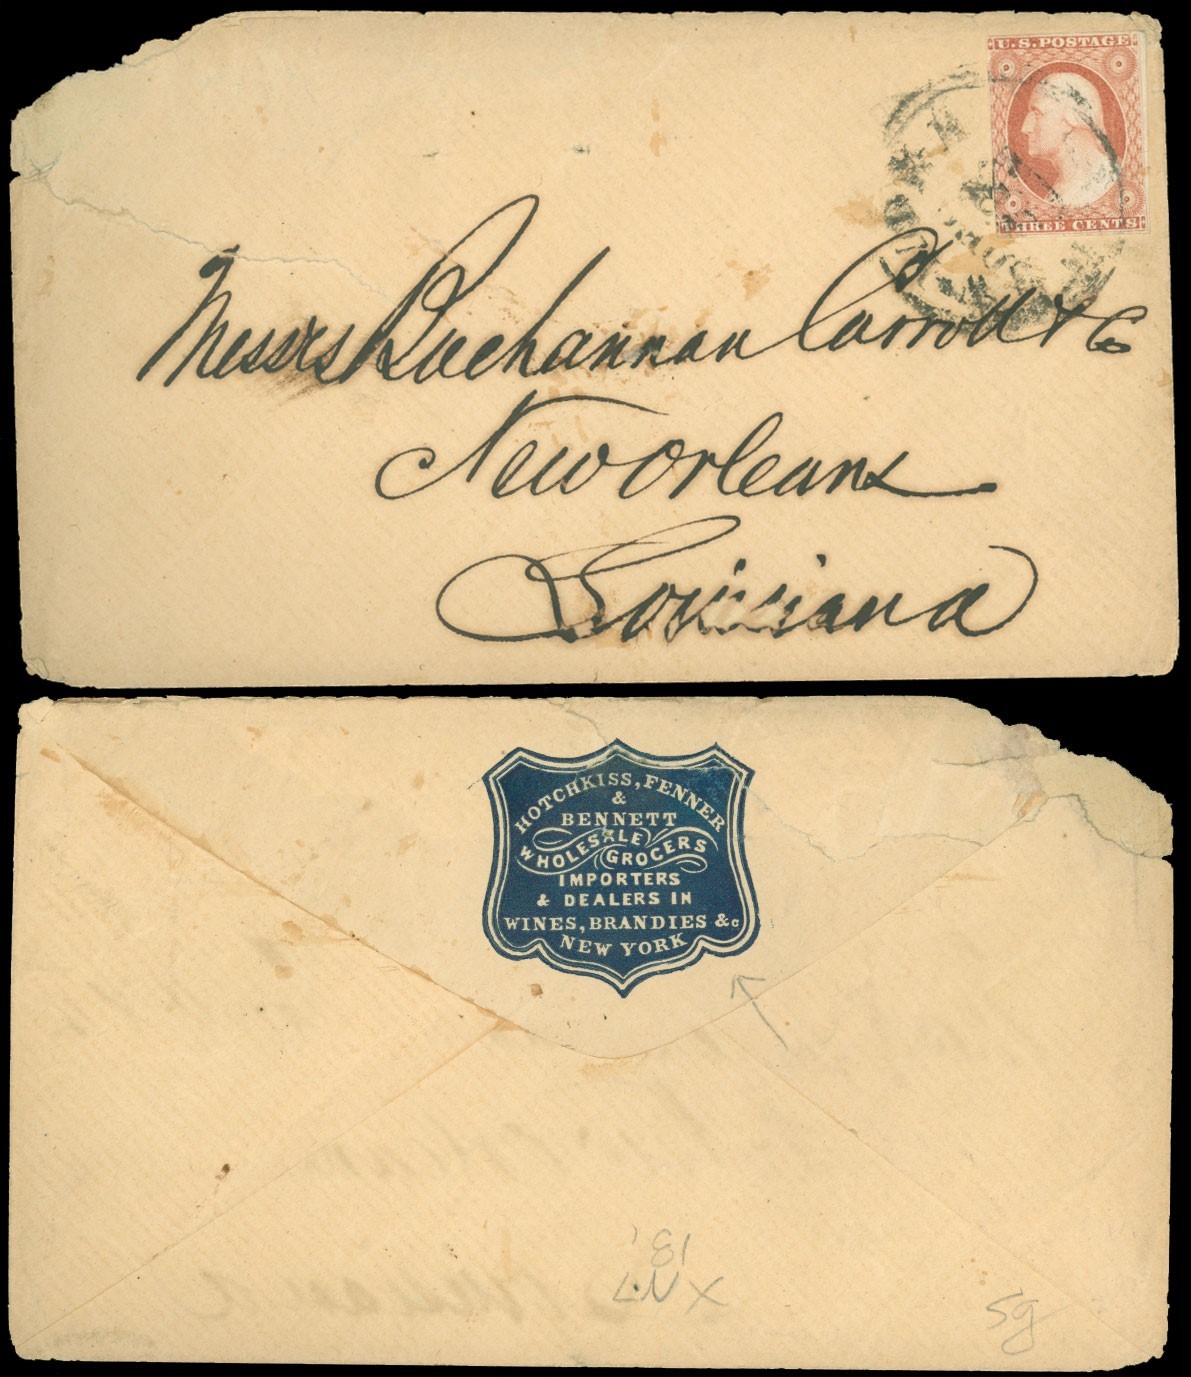 U.S. POSTAGE
THREE CENTS
Messrs Buchannan Carroll & Co
New Orleans
Louisiana
HOTCHKISS, FENNER
&
BENNETT
WHOLESALE
GROCERS
IMPORTERS
& DEALERS IN
WINES, BRANDIES &c
NEW YORK